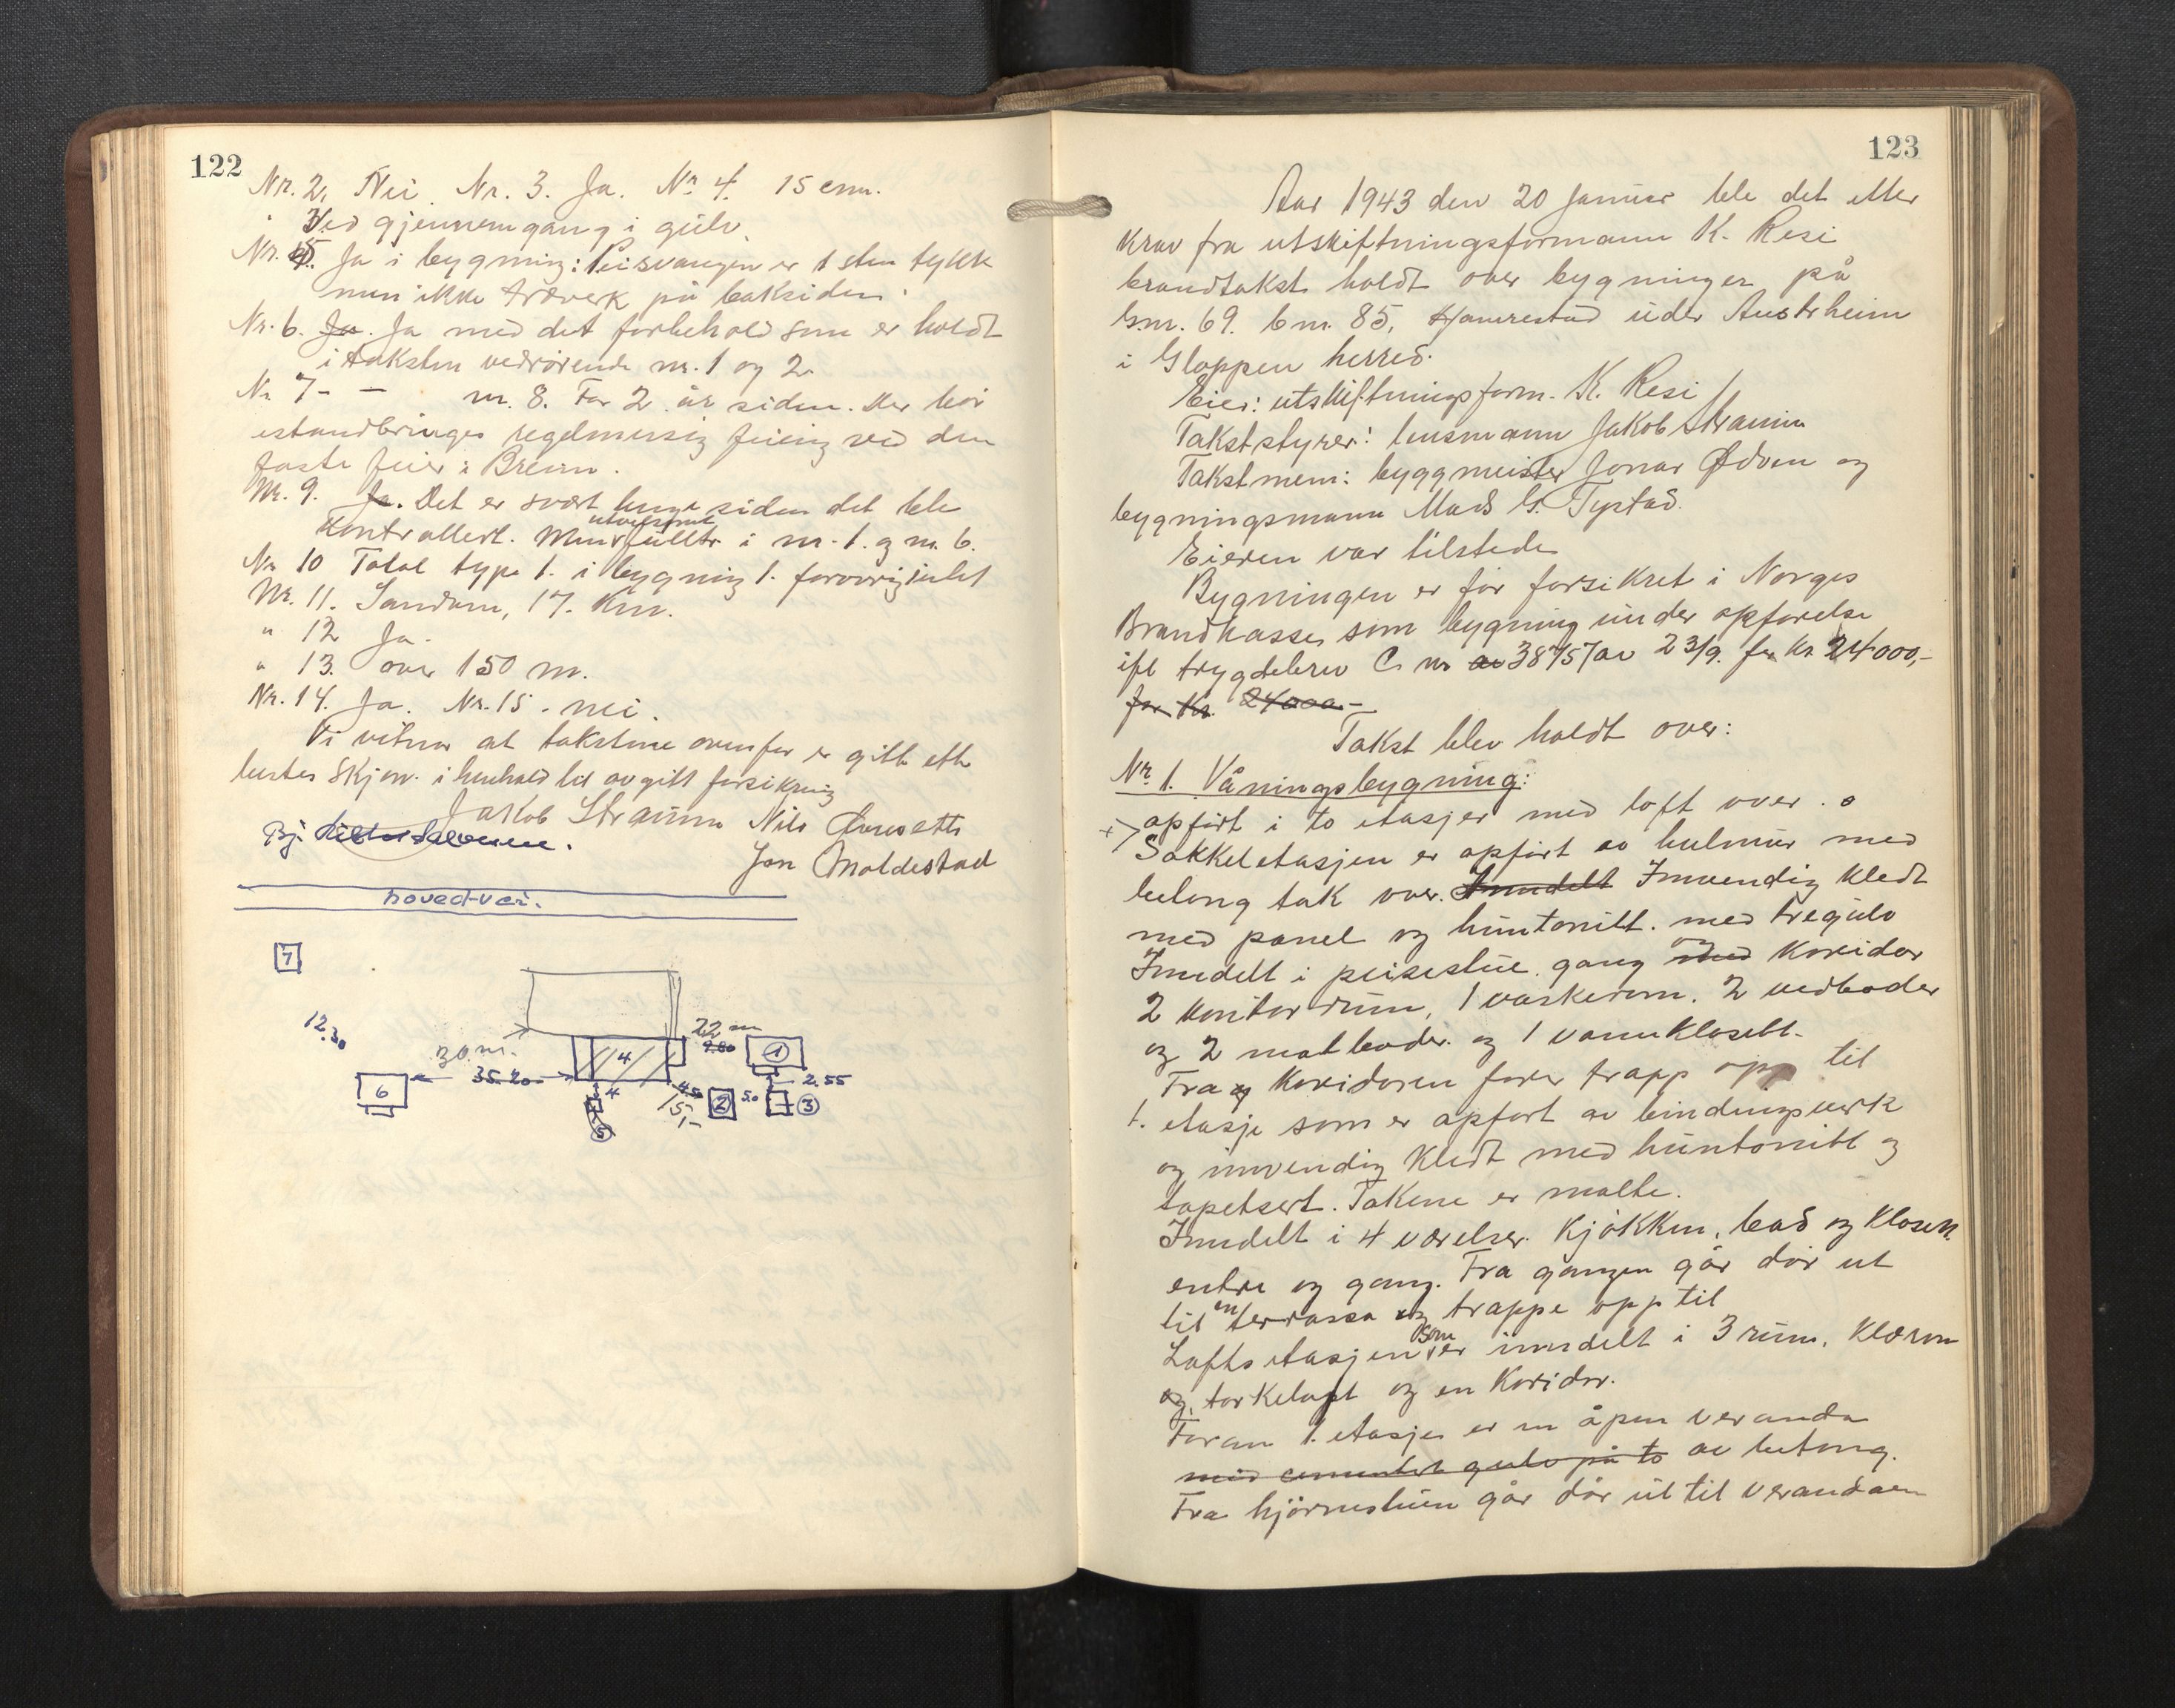 122
Nr. 2. Nei. Nr. 3. Ja. Nr 4. 15 cm.
Ved gjennemgang i gulv.
Nr. 5. Ja i bygning: Peisvangen er 1 sten tykk
men ikke træverk på baksiden.
Nr. 6. Ja. Ja med det forbehold som er holdt
i taksten vedrørende nr. 1 og 2.
Nr 7 - - nr. 8. For 2 år siden. Der bør
istandbringes regelmessig feiing ved den
faste feier i Breim.
Nr. 9. Ja. Det er svært lenge siden det ble
kontrollert. Minr futtr i nr. 1. og nr. 6.
Nr 10 Total type 1. i bygning 1.
Nr. 11. Sandane, 17. Km.
" 12 Ja.
" 13. over 150 m.
Nr. 14. Ja. Nr. 15 - nei.
Vi vitner at takstene ovenfor er gitt ette
bestes skjøn. i henhold til avgitt forsikring
Jakob Straume Nils
Jon Moldestad
hoved-vei.
7
12.30
30. m.
35.20
6
4
22 m
1
2.55
4
4.50
15,-
2
5.0
3
5
123
Aar 1943 den 20 Januar ble det etter
krav fra utskiftningsformann K. Resi
brandtakst holdt over bygninger på
Gnr. 69. bnr. 85, Hamrestad under Austrheim
i Gloppen herred.
Eier: utskiftningsform. K. Resi
Takststyrer: lensmann Jakob Straume
Takstmenn: byggmeister Jonar Ødven og
bygningsmann Mads G. Tystad.
Eieren var tilstede
Bygningen er før forsikret i Norges
Brandkasse som bygning under opførelse
ifl trygdebrev C nr av 38757 av 23/9. for kr 24000,-
for kr. 24000.-
Takst blev holdt over:
Nr. 1. Våningsbygning:
opført i to etasjer med loft over.
+> Sokkeletasjen er opført av hulmur med
betong tak over. Inndelt Innvendig kledt
med panel og huntonitt. med tregulv
Inndelt i peisestue. gang og med koridor
2 kontorrum, 1 vaskerom. 2 vedboder
og 2 matboder. og 1 vannklosett.
Fra koridoren fører trapp opp til
1. etasje som er opført av bindingsverk
og innvendig kledt med huntonitt og
tapetsert. Takene er malte.
Inndelt i 4 værelser. kjøkken, bad og klosett.
entre og gang. Fra gangen går dør ut
til en terrassa og trappe opp til
Loftsetasjen som er inndelt i 3 rum, klærom
og tørkeloft og en koridor.
Foran 1. etasje er en åpen veranda
med cementert gulv på to av betong.
Fra hjørnestuen går dør ut til verandaen